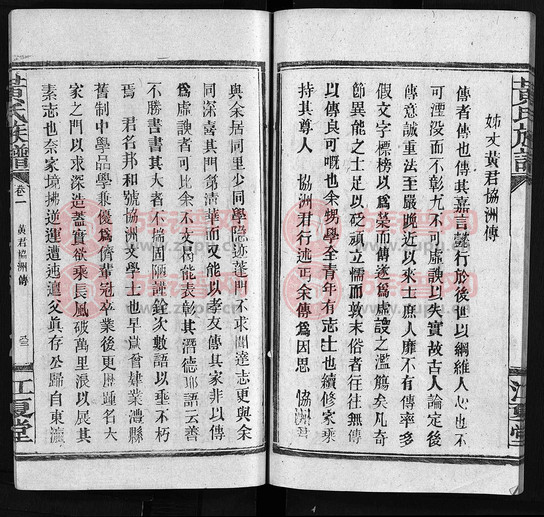 姊丈黄君協洲傳
傳者傳也傳其嘉言懿行於後世以綱維人心也不
可湮沒而不彰尤不可虛諛以失實故古人論定後
傳意誠重法至嚴晚近以來士庶人靡不有傳率多
假文字標榜以爲榮而傳遂爲虛設之濫觴矣凡奇
節異能之士足以砭頑立懦而敦末俗者往往無傳
以傳良可嘅也余甥學全青年有志士也續修家乘
持其尊人 協洲君行述丐余傳爲因思 協洲君
與余居同里少同學隱迹蓬門不求聞達志更與余
同深喜其門第清華而又能以孝友傳其家非以傳
爲虛諛者可比余不文曷能表彰其潛德耶語云善
不勝書書其大者不揣固陋謹銓次數語以垂不朽
焉 君名邦和號協洲文學士也早歲曾肄業澧縣
舊制中學品學兼優爲儕輩冠卒業後更歷踵名大
家之門以求深造蓋實欲乘長風破萬里浪以展其
素志也奈家境拂逆運遭迍邅父真存公歸自東瀛
黃氏族譜
卷一
黃君協洲傳
江夏堂
黃氏族譜
江夏堂